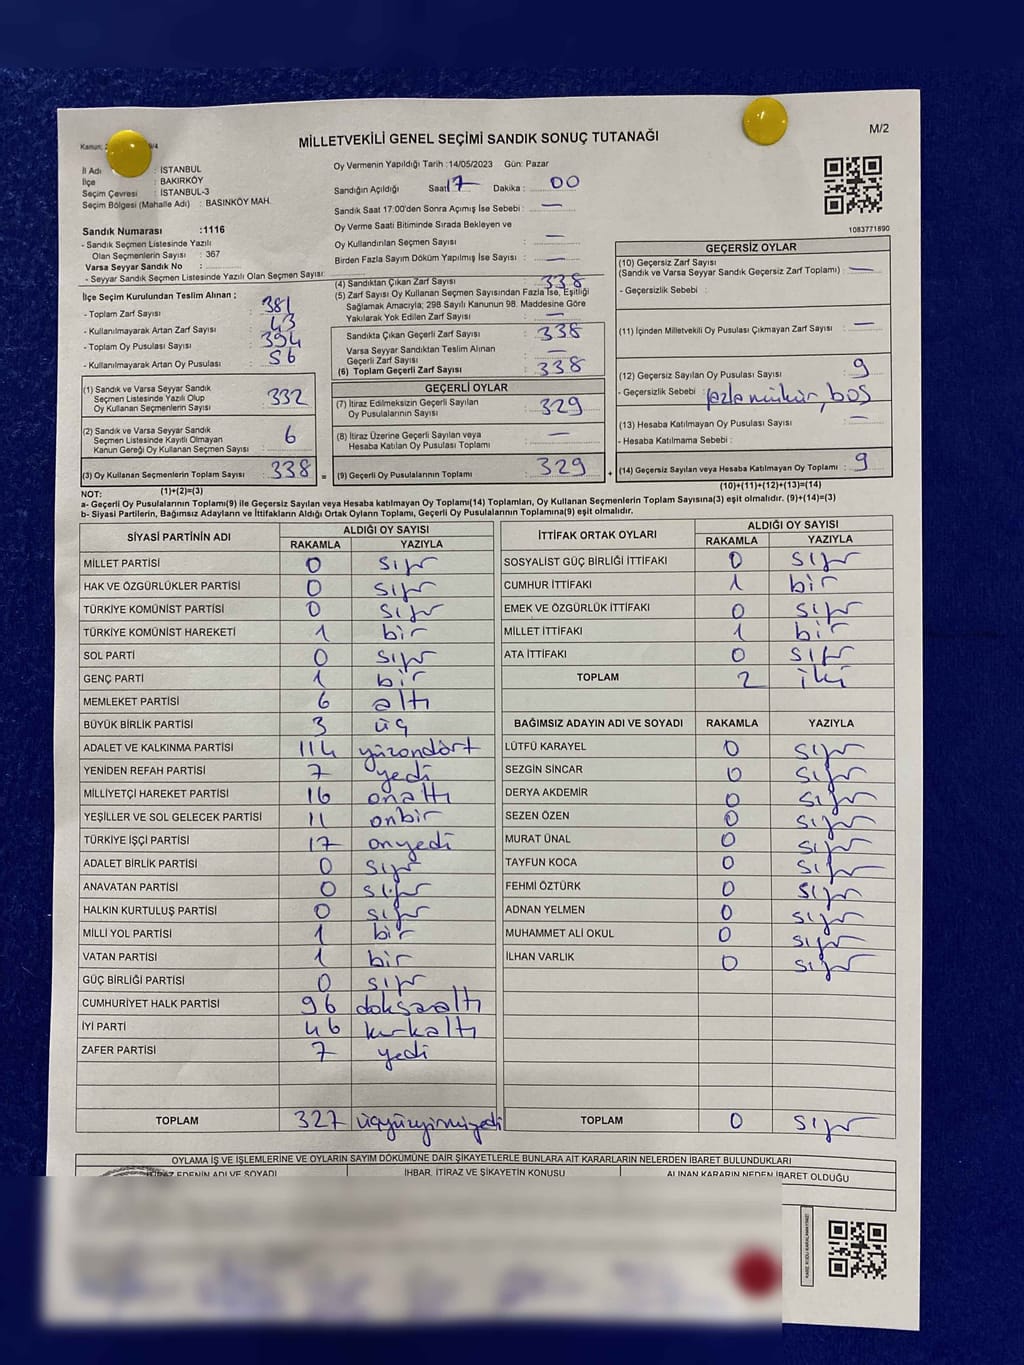 M/2
MİLLETVEKİLİ GENEL SEÇİMİ SANDIK SONUÇ TUTANAĞI
İl Adı : İSTANBUL
İlçe : BAKIRKÖY
Seçim Çevresi : İSTANBUL-3
Seçim Bölgesi (Mahalle Adı) : BASINKÖY MAH.
Oy Vermenin Yapıldığı Tarih :14/05/2023 Gün: Pazar
Sandığın Açıldığı Saat 17 Dakika : 00
Sandık Saat 17:00'den Sonra Açımış İse Sebebi : —
Oy Verme Saati Bitiminde Sırada Bekleyen ve
Oy Kullandırılan Seçmen Sayısı : —
Birden Fazla Sayım Döküm Yapılmış İse Sayısı : —
1083771890
Sandık Numarası :1116
- Sandık Seçmen Listesinde Yazılı
Olan Seçmenlerin Sayısı : 367
Varsa Seyyar Sandık No :
- Seyyar Sandık Seçmen Listesinde Yazılı Olan Seçmen Sayısı:
İlçe Seçim Kurulundan Teslim Alınan ;
- Toplam Zarf Sayısı : 381
- Kullanılmayarak Artan Zarf Sayısı : 43
- Toplam Oy Pusulası Sayısı : 394
- Kullanılmayarak Artan Oy Pusulası : 56
(1) Sandık ve Varsa Seyyar Sandık
Seçmen Listesinde Yazılı Olup
Oy Kullanan Seçmenlerin Sayısı : 332
(2) Sandık ve Varsa Seyyar Sandık
Seçmen Listesinde Kayıtlı Olmayan
Kanun Gereği Oy Kullanan Seçmen Sayısı : 6
(3) Oy Kullanan Seçmenlerin Toplam Sayısı : 338
(1)+(2)=(3)
(4) Sandıktan Çıkan Zarf Sayısı : 338
(5) Zarf Sayısı Oy Kullanan Seçmen Sayısından Fazla İse, Eşitliği
Sağlamak Amacıyla; 298 Sayılı Kanunun 98. Maddesine Göre
Yakılarak Yok Edilen Zarf Sayısı : —
Sandıkta Çıkan Geçerli Zarf Sayısı : 338
Varsa Seyyar Sandıktan Teslim Alınan
Geçerli Zarf Sayısı : —
(6) Toplam Geçerli Zarf Sayısı : 338
GEÇERLİ OYLAR
(7) İtiraz Edilmeksizin Geçerli Sayılan
Oy Pusulalarının Sayısı : 329
(8) İtiraz Üzerine Geçerli Sayılan veya
Hesaba Katılan Oy Pusulası Toplamı : —
= (9) Geçerli Oy Pusulalarının Toplamı : 329 +
GEÇERSİZ OYLAR
(10) Geçersiz Zarf Sayısı
(Sandık ve Varsa Seyyar Sandık Geçersiz Zarf Toplamı) : —
- Geçersizlik Sebebi :
(11) İçinden Milletvekili Oy Pusulası Çıkmayan Zarf Sayısı : —
(12) Geçersiz Sayılan Oy Pusulası Sayısı : 9
- Geçersizlik Sebebi : fazla mühür, boş
(13) Hesaba Katılmayan Oy Pusulası Sayısı : —
- Hesaba Katılmama Sebebi :
(14) Geçersiz Sayılan veya Hesaba Katılmayan Oy Toplamı : 9
(10)+(11)+(12)+(13)=(14)
NOT:
a- Geçerli Oy Pusulalarının Toplamı(9) ile Geçersiz Sayılan veya Hesaba katılmayan Oy Toplamı(14) Toplamları, Oy Kullanan Seçmenlerin Toplam Sayısına(3) eşit olmalıdır. (9)+(14)=(3)
b- Siyasi Partilerin, Bağımsız Adayların ve İttifakların Aldığı Ortak Oyların Toplamı, Geçerli Oy Pusulalarının Toplamına(9) eşit olmalıdır.
SİYASİ PARTİNİN ADI ALDIĞI OY SAYISI
RAKAMLA YAZIYLA
MİLLET PARTİSİ 0 sıfır
HAK VE ÖZGÜRLÜKLER PARTİSİ 0 sıfır
TÜRKİYE KOMÜNİST PARTİSİ 0 sıfır
TÜRKİYE KOMÜNİST HAREKETİ 1 bir
SOL PARTİ 0 sıfır
GENÇ PARTİ 1 bir
MEMLEKET PARTİSİ 6 altı
BÜYÜK BİRLİK PARTİSİ 3 üç
ADALET VE KALKINMA PARTİSİ 114 yüzondört
YENİDEN REFAH PARTİSİ 7 yedi
MİLLİYETÇİ HAREKET PARTİSİ 16 onaltı
YEŞİLLER VE SOL GELECEK PARTİSİ 11 onbir
TÜRKİYE İŞÇİ PARTİSİ 17 onyedi
ADALET BİRLİK PARTİSİ 0 sıfır
ANAVATAN PARTİSİ 0 sıfır
HALKIN KURTULUŞ PARTİSİ 0 sıfır
MİLLİ YOL PARTİSİ 1 bir
VATAN PARTİSİ 1 bir
GÜÇ BİRLİĞİ PARTİSİ 0 sıfır
CUMHURİYET HALK PARTİSİ 96 doksanaltı
İYİ PARTİ 46 kırkaltı
ZAFER PARTİSİ 7 yedi
TOPLAM 327 üçyüzyirmiyedi
İTTİFAK ORTAK OYLARI ALDIĞI OY SAYISI
RAKAMLA YAZIYLA
SOSYALİST GÜÇ BİRLİĞİ İTTİFAKI 0 sıfır
CUMHUR İTTİFAKI 1 bir
EMEK VE ÖZGÜRLÜK İTTİFAKI 0 sıfır
MİLLET İTTİFAKI 1 bir
ATA İTTİFAKI 0 sıfır
TOPLAM 2 iki
BAĞIMSIZ ADAYIN ADI VE SOYADI RAKAMLA YAZIYLA
LÜTFÜ KARAYEL 0 sıfır
SEZGİN SİNCAR 0 sıfır
DERYA AKDEMİR 0 sıfır
SEZEN ÖZEN 0 sıfır
MURAT ÜNAL 0 sıfır
TAYFUN KOCA 0 sıfır
FEHMİ ÖZTÜRK 0 sıfır
ADNAN YELMEN 0 sıfır
MUHAMMET ALİ OKUL 0 sıfır
İLHAN VARLIK 0 sıfır
TOPLAM 0 sıfır
OYLAMA İŞ VE İŞLEMLERİNE VE OYLARIN SAYIM DÖKÜMÜNE DAİR ŞİKAYETLERLE BUNLARA AİT KARARLARIN NELERDEN İBARET BULUNDUKLARI
İTİRAZ EDENİN ADI VE SOYADI İHBAR, İTİRAZ VE ŞİKAYETİN KONUSU ALINAN KARARIN NEDEN İBARET OLDUĞU